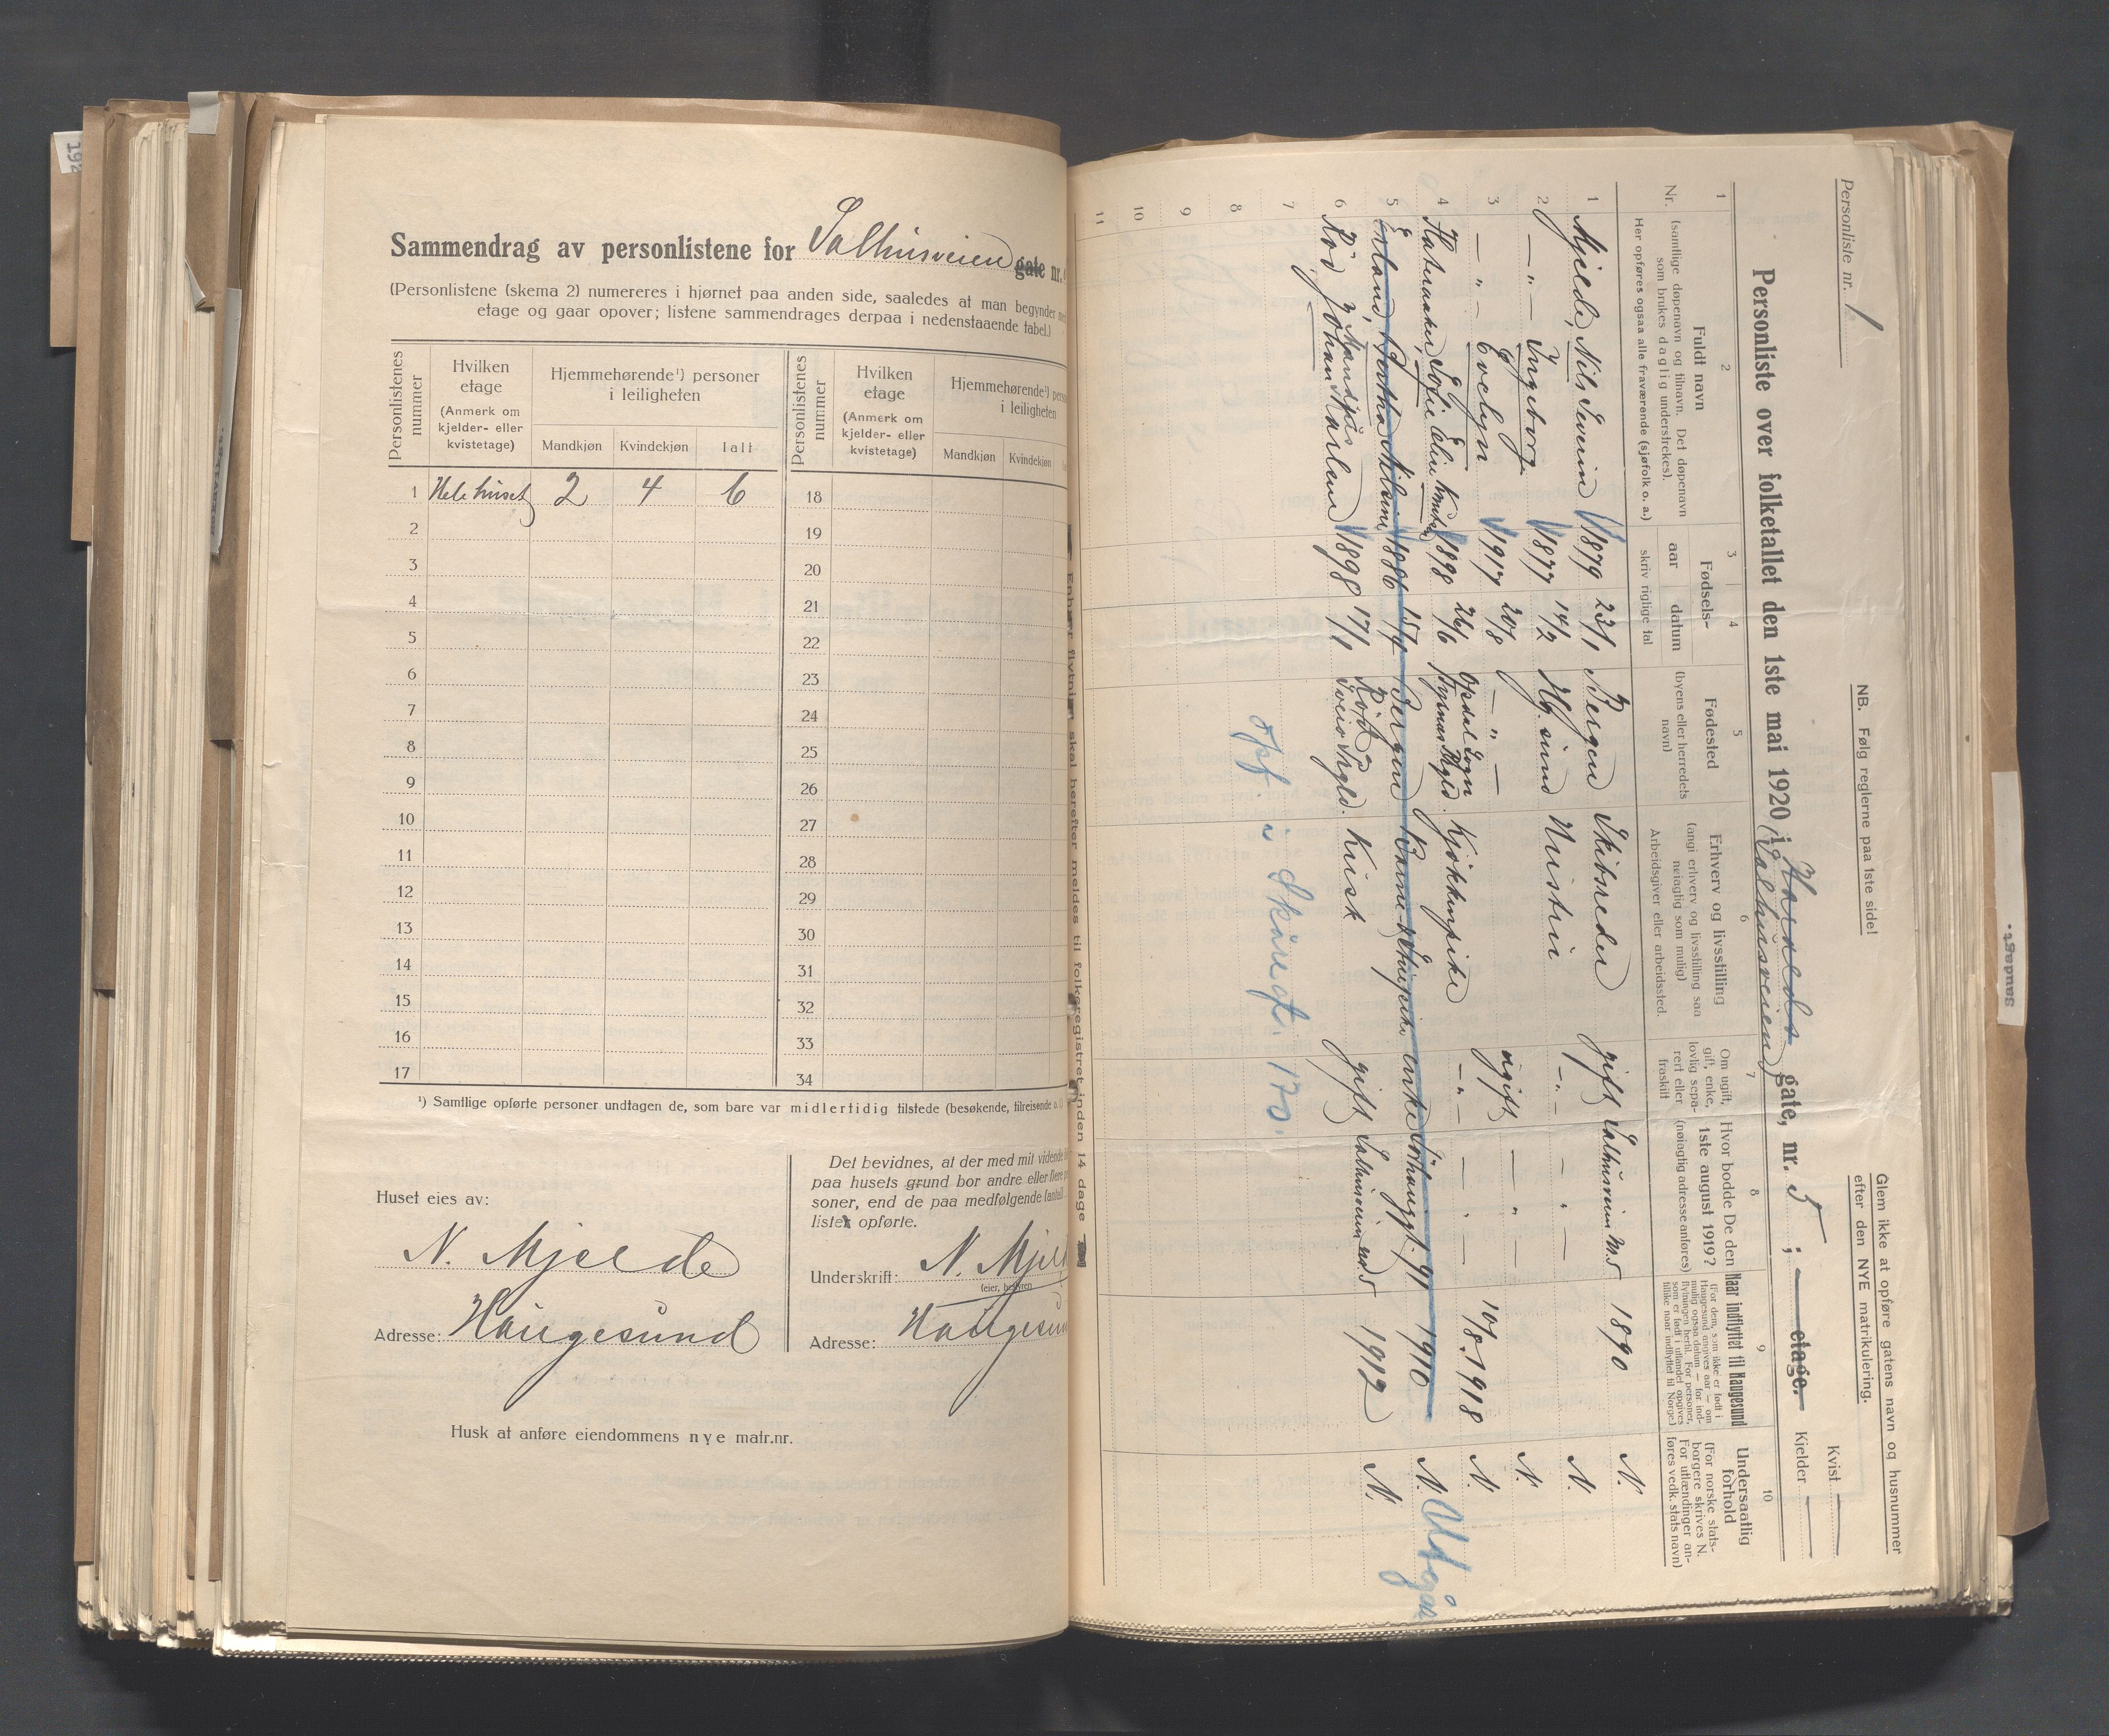 Sammendrag av personlistene for Salhusveien gate nr.
(Personlistene (skema 2) numereres i hjørnet paa anden side, saaledes at man begynder
etage og gaar opover; listene sammendrages derpaa i nedenstaaende tabel.)
Personlistenes nummer
Hvilken etage
(Anmerk om kjelder- eller kvistetage)
Hjemmehørende¹) personer i leiligheten
Mandkjøn Kvindekjøn Ialt
Personlistenes nummer
Hvilken etage
(Anmerk om kjelder- eller kvistetage)
Hjemmehørende¹)
i leiligheten
Mandkjøn Kvindekjøn
1 Hele huset 2 4 6 18
2 19
3 20
4 21
5 22
6 23
7 24
8 25
9 26
10 27
11 28
12 29
13 30
14 31
15 32
16 33
17 34
¹) Samtlige opførte personer undtagen de, som bare var midlertidig tilstede (besøkende, tilreisende
Huset eies av:
N. Mjelde
Adresse: Haugesund
Det bevidnes, at der med mit vidende
paa husets grund bor andre eller flere
soner, end de paa medfølgende (antall
lister opførte.
Underskrift: N. Mjel
(eier, bestyren
Adresse: Haugesun
Husk at anføre eiendommens nye matr.nr.
Enhver flytning skal herefter meldes til folkeregistret inden 14 dage
Personliste nr. 1
NB. Følg reglerne paa 1ste side!
Glem ikke at opføre gatens navn og husnummer
efter den NYE matrikulering.
Personliste over folketallet den 1ste mai 1920 i Haralds gate, nr. 5 ; — etage.
(Salhusveien)
Kvist —
Kjelder —
1 2 3 4 5 6 7 8 9 10
Nr.
Fuldt navn
(samtlige døpenavn og tilnavn. Det døpenavn
som brukes daglig understrekes).
Her opføres ogsaa alle fraværende (sjøfolk o. a.)
Fødsels-
aar datum
skriv rigtige tal
Fødested
(byens eller herredets
navn)
Erhverv og livsstilling
(angi erhverv og livsstilling saa
nøiagtig som mulig)
Arbeidsgiver eller arbeidssted.
Om ugift,
gift, enke,
lovlig sepa-
rert eller
fraskilt
Hvor bodde De den
1ste august 1919?
(nøiagtig adresse anføres)
Naar indflyttet til Haugesund
(For dem, som ikke er født i
Haugesund angives aar — om
mulig ogsaa datum — for ind-
flytningen hertil. For personer,
som er født i utlandet opgives
tillike naar indflyttet til Norge)
Undersaatlig
forhold
(For norske stats-
borgere skrives N.
For utlændinger an-
føres vedk. stats navn)
1 Mjelde, Nils Severin 1879 23/1 Bergen Skibsreder gift Salhusveien nr. 5 1890 N.
2 — " — Ingeborg 1877 14/2 Hg. sund Hustru — " — — " — N.
3 — " — Evelyn 1917 20/8 — " — ugift — " — N.
4 Eglie Elin 1898 26/6 Opdal Sogn Kjøkkenpike — " — — " — 10/8. 1918 N.
5 1886 15/4 Bergen Barne- 91 1910 N.
6 Röd, Johan Karlene 1898 17/1 Sveio Kusk gift Salhusveien nr. 5 1912 N.
7
8
9
10
11
opf. i Skåregt. 170.
Saudagt.
192